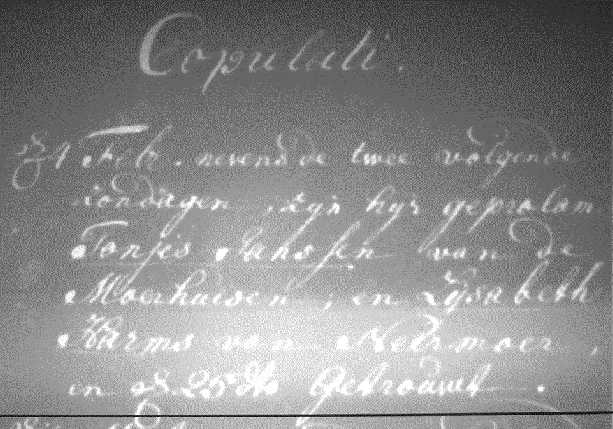 Copulati.
d 4 Febr. nevens de twee volgende
zondagen, zijn hijr geproklam
Tonjes Jahssen van de
Moerhusen, en Lysabeth
Harms van Nedrmoer,
en d 25 do Getrouwet.